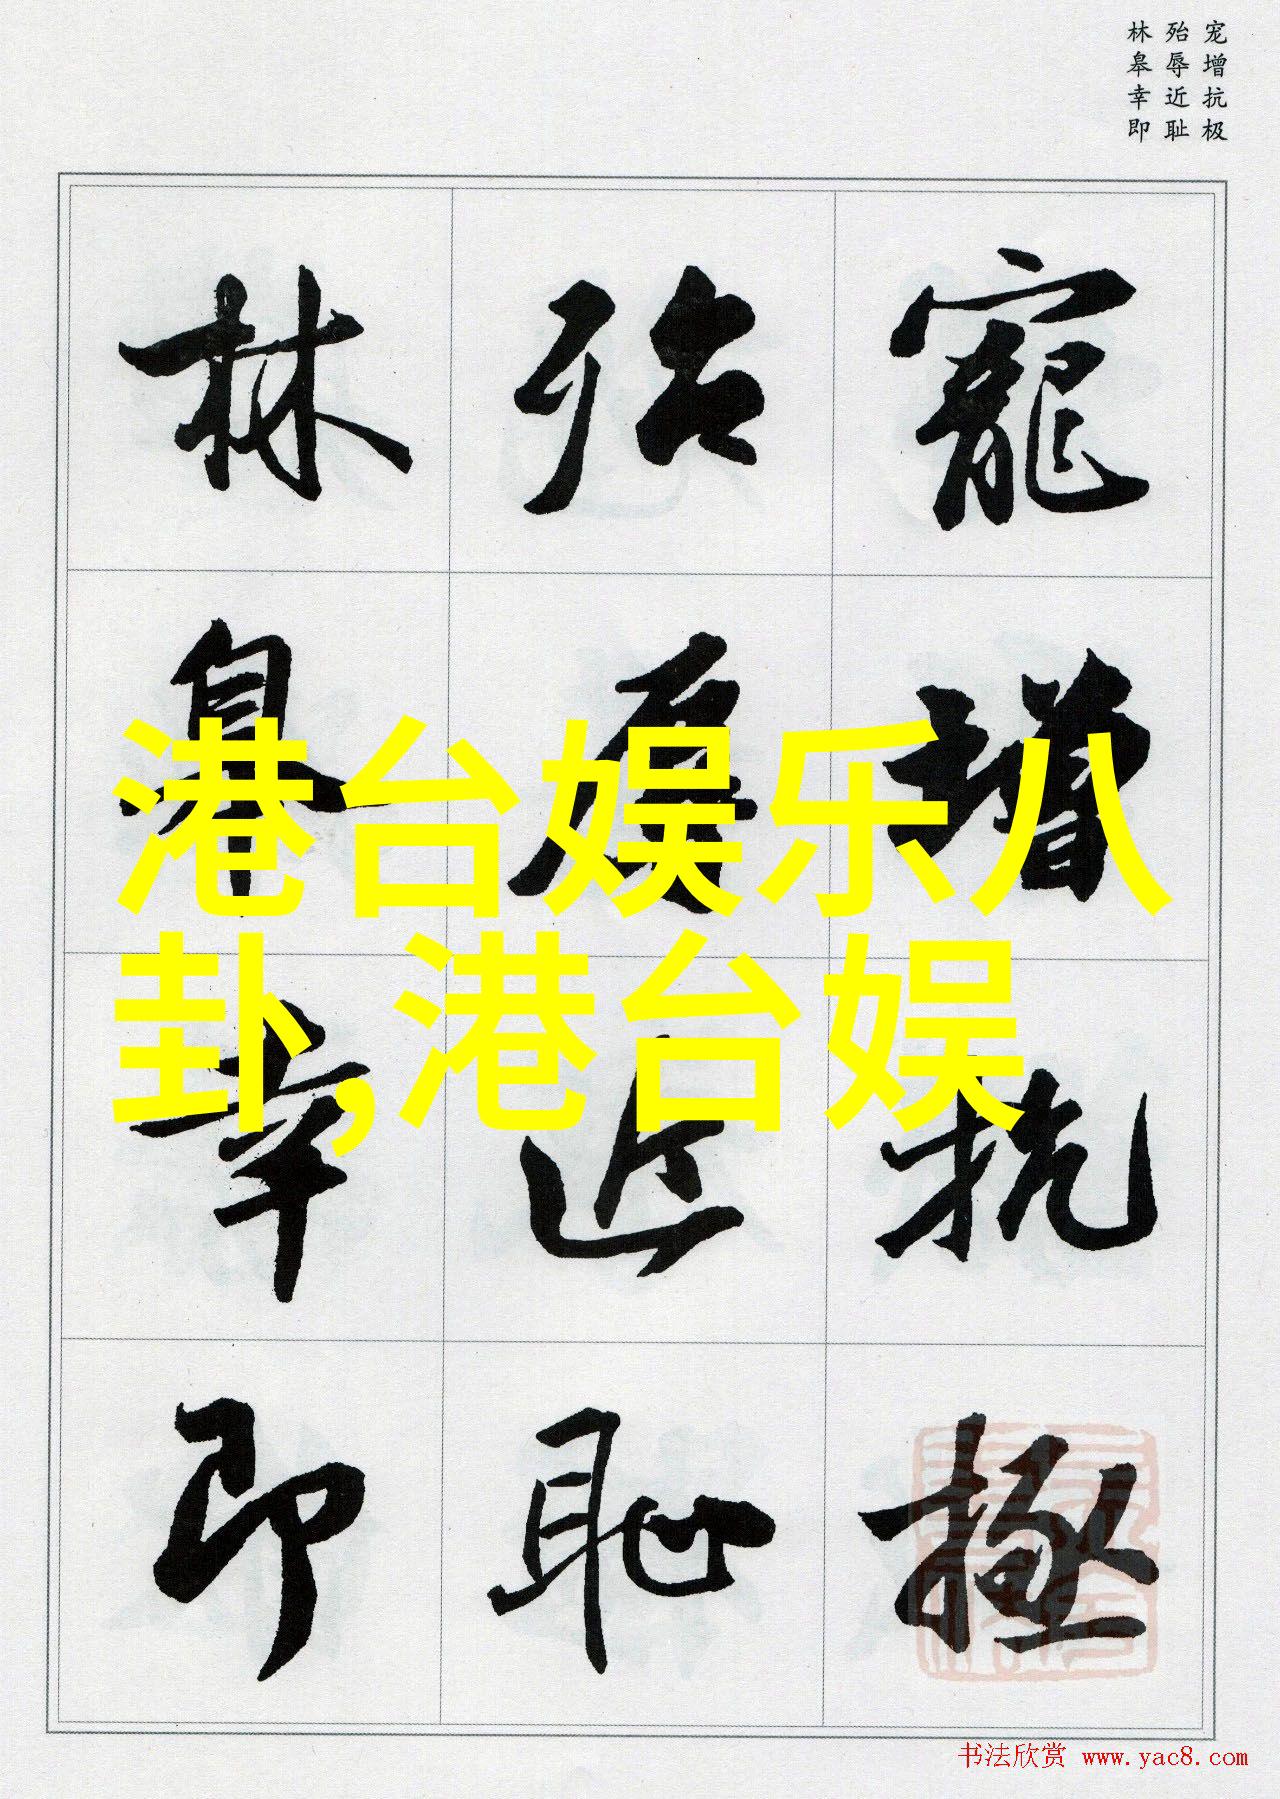 宠增抗极
殆辱近耻
林皋幸即
寵增抗極
殆辱近恥
林皋幸即
港台娱乐八
卦,港台娱
书法欣赏 www.yac8.com